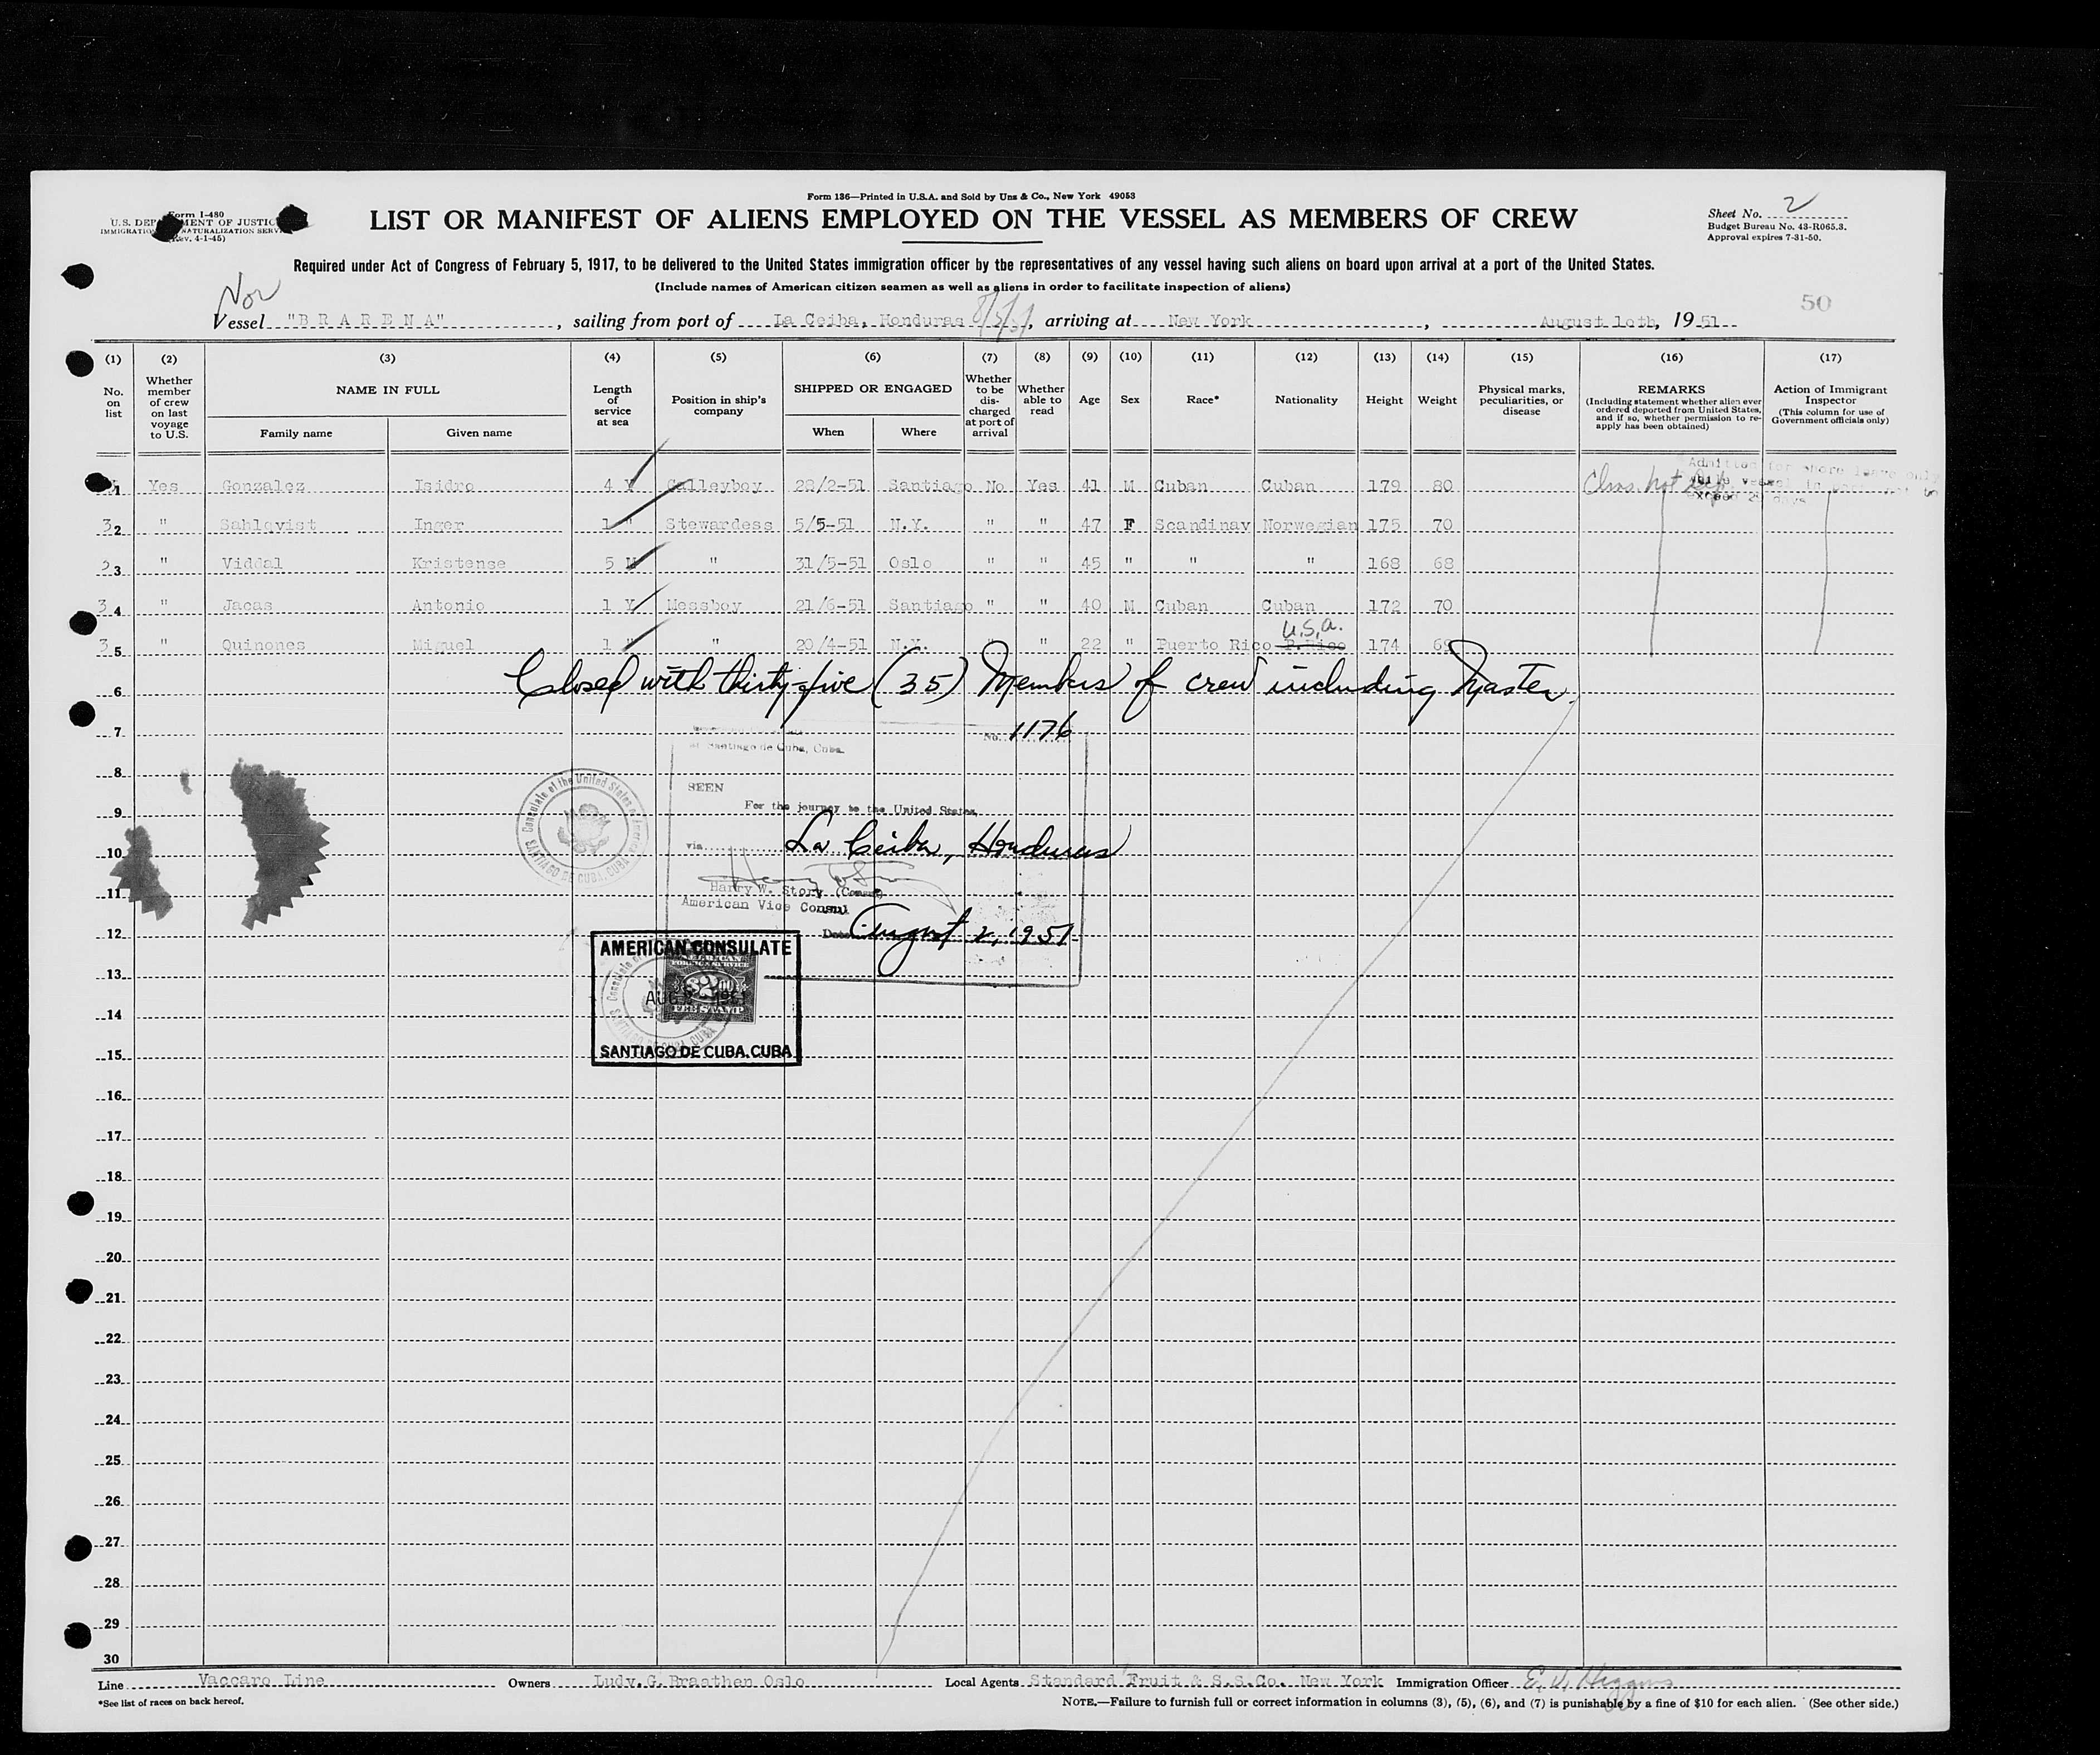 Form 136—Printed in U.S.A. and Sold by Unz & Co., New York 49053
Form I-480
U.S. DEPARTMENT OF JUSTICE
IMMIGRATION NATURALIZATION SERVICE
(Rev. 4-1-45)
LIST OR MANIFEST OF ALIENS EMPLOYED ON THE VESSEL AS MEMBERS OF CREW
Sheet No. 2
Budget Bureau No. 43-R065.3.
Approval expires 7-31-50.
Required under Act of Congress of February 5, 1917, to be delivered to the United States immigration officer by the representatives of any vessel having such aliens on board upon arrival at a port of the United States.
(Include names of American citizen seamen as well as aliens in order to facilitate inspection of aliens)
50
Nor
Vessel "BRARENA", sailing from port of La Ceiba, Honduras 8/5/51, arriving at New York, August 10th, 1951
(1) (2) (3) (4) (5) (6) (7) (8) (9) (10) (11) (12) (13) (14) (15) (16) (17)
No. on list
Whether member of crew on last voyage to U.S.
NAME IN FULL
Family name
Given name
Length of service at sea
Position in ship's company
SHIPPED OR ENGAGED
When
Where
Whether to be discharged at port of arrival
Whether able to read
Age
Sex
Race*
Nationality
Height
Weight
Physical marks, peculiarities, or disease
REMARKS
(Including statement whether alien ever ordered deported from United States, and if so, whether permission to re-apply has been obtained)
Action of Immigrant Inspector
(This column for use of Government officials only)
Admitted for shore leave only
1 Yes Gonzalez Isidro 4 Y Galleyboy 28/2-51 Santiago No Yes 41 M Cuban Cuban 179 80
exceed 29 days
32 " Sahlqvist Inger 1 " Stewardess 5/5-51 N.Y. " " 47 F Scandinav Norwegian 175 70
33 " Viddal Kristense 5 M " 31/5-51 Oslo " " 45 " " " 168 68
34 " Jacas Antonio 1 Y Messboy 21/6-51 Santiago " " 40 M Cuban Cuban 172 70
U.S.A.
35 " Quinones Miguel 1 " " 20/4-51 N.Y. " " 22 " Puerto Rico P.Rico 174 69
Closed with thirty-five (35) Members of crew including Master.
6
7
No. 1176
at Santiago de Cuba, Cuba.
8
SEEN
Consulate of the United States of America
SANTIAGO DE CUBA, CUBA
9
For the journey to the United States,
10
via La Ceiba, Honduras
11
Harry W. Story (Consul)
American Vice Consul
12
Date August 2, 1951
AMERICAN CONSULATE
13
AMERICAN FOREIGN SERVICE
$2
AUG 2 - 1951
14
FEE STAMP
15
SANTIAGO DE CUBA, CUBA
16
17
18
19
20
21
22
23
24
25
26
27
28
29
30
Line Vaccaro Line Owners Ludv. G. Braathen Oslo Local Agents Standard Fruit & S.S.Co. New York Immigration Officer E. V. Higgins
*See list of races on back hereof.
NOTE.—Failure to furnish full or correct information in columns (3), (5), (6), and (7) is punishable by a fine of $10 for each alien. (See other side.)